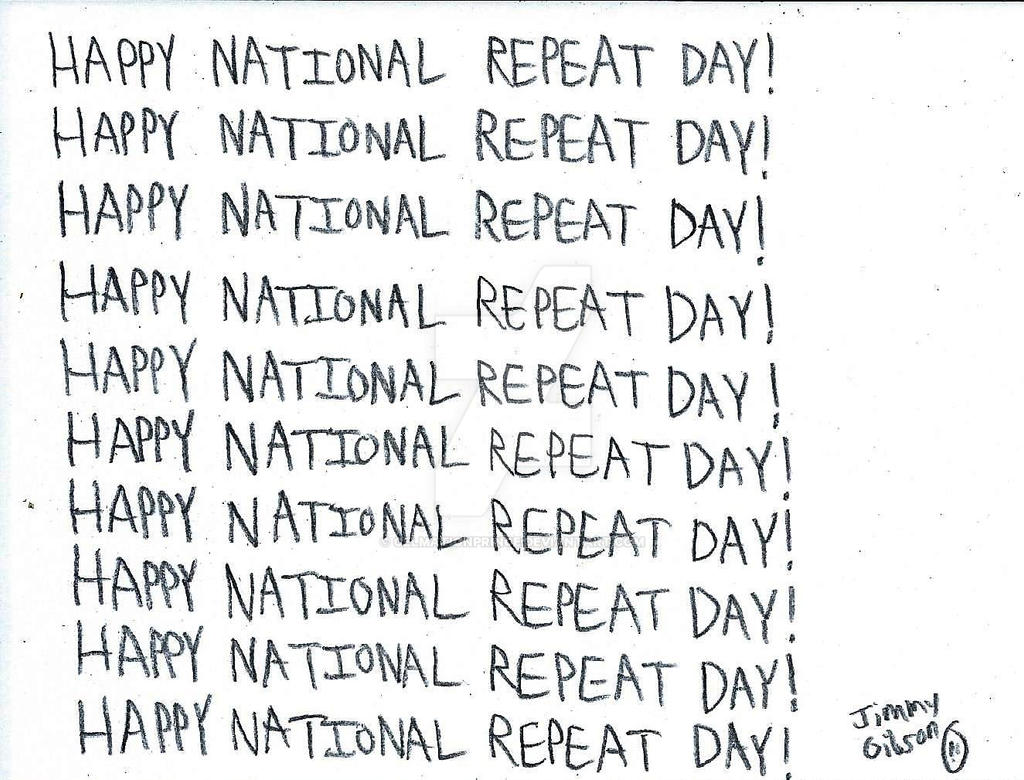 HAPPY NATIONAL REPEAT DAY!
HAPPY NATIONAL REPEAT DAY!
HAPPY NATIONAL REPEAT DAY!
HAPPY NATIONAL REPEAT DAY!
HAPPY NATIONAL REPEAT DAY!
HAPPY NATIONAL REPEAT DAY!
HAPPY NATIONAL REPEAT DAY!
HAPPY NATIONAL REPEAT DAY!
HAPPY NATIONAL REPEAT DAY!
HAPPY NATIONAL REPEAT DAY!
Jimmy
Gibson